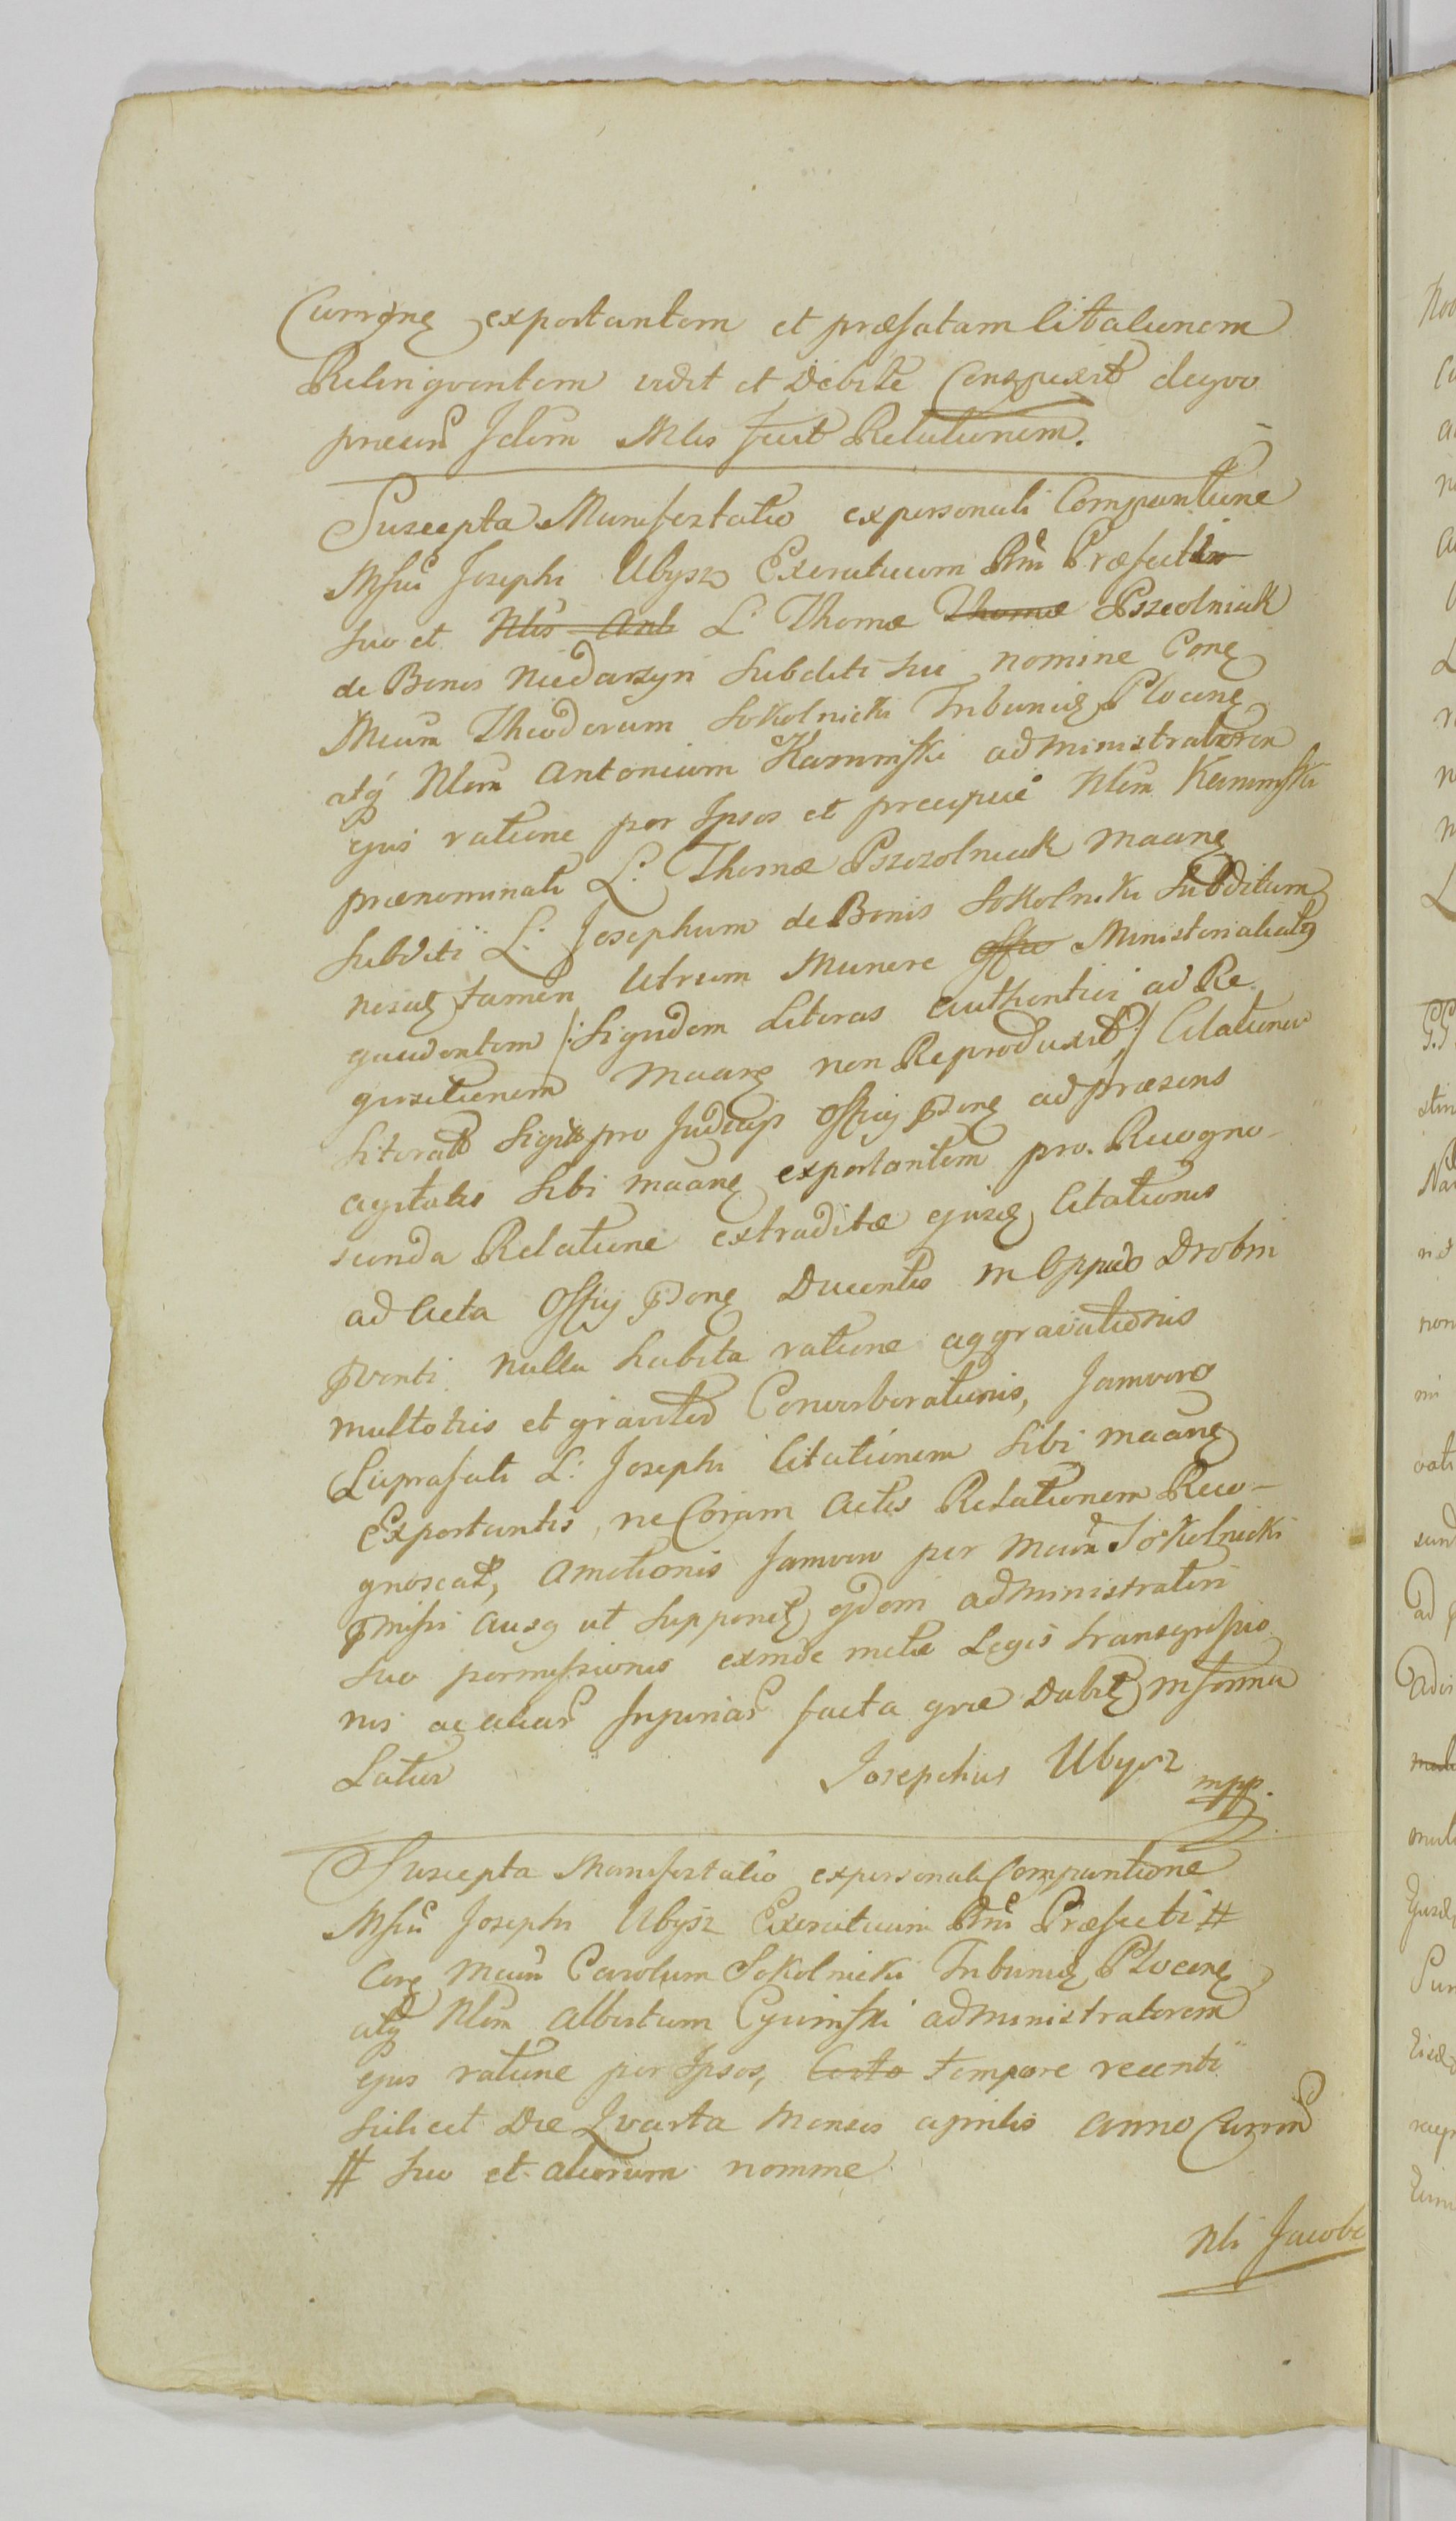 Cumqne exportantem et præfatam Citationem
Relinqventem vidit et Debite Conspexit deqvo
præm̃ Idem Mlis fecit Relationem.
Suscepta Manifestatio expersonali Compantione
Mſici Josephi Ubysz Exercituum Rm̃ Præfecti
suo et Nlis Anl L: Thomæ Thomæ Pszeolniak
de Bonis Niedarzyn Subditi sui nomine Conę
Mcum Theodorum Sokolnicki Tribunię Plocenę
atq́ Nlem Antonium Kaminſki administratorem
ejus ratione per Ipsos et precipue Nlem Kaminſki
prænominati L: Thomæ Pszczolniak maanę
Subditi L: Josephum de Bonis Sokolniki Subditum
nescię tamen Utrum Munere Offio Ministerialiatq
gaudentem /: Siqvidem Literas authentici ad Re
qvisitionem maanę non Reproduxit :/ Citationem
Literatt Sigitt pro Judicijs Officij Pnę ad præsens
agitatis sibi maanę exportantem pro Recogno-
scenda Relatione extraditæ ejusę Citationis
ad Acta Officij Pnę Ducentis in Oppido Drobin
Pventi nulla habita ratione aggravationis
multoties et graviter Converberationis, Jamvero
Suprafati L: Josephi Citationem Sibi maanę
Exportantis, ne Coram Actis Relationem Reco-
gnoscat, Amotionis Jamvero per Mcum Sokolnicki
Pmiſsi ausq ut Supponeę ejdem administratori
suo permiſsionis exinde metæ Legis transgreſsio
nis ac aliar̃ Injuriar̃ facta qvæ Dabitę in forma
Latiori
Josephus Ubysz
mpp.
Suscepta Manifestatio expersonali Compantione
Mſici Josephi Ubysz Exercituum Rm̃ Præfecti #
Conę Mcum Carolum Sokolnicki Tribunię Plocenę
atq Nlem Albertum Cyvinſki administratorem
ejus ratione per Ipsos, Certo tempore recenti
scilicet Die Qvarta Mensis aprilis anno Curren
# suo et aliorum nomine
Nli Jacobi